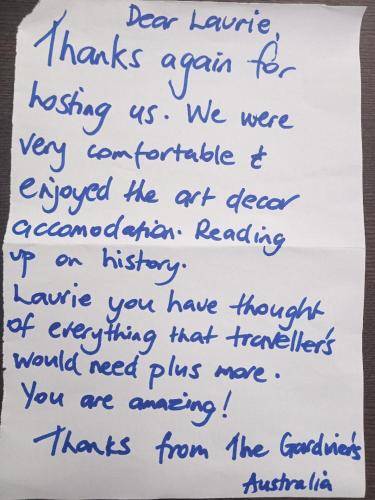 Dear Laurie,
Thanks again for
hosting us. We were
very comfortable &
enjoyed the art decor
accomodation. Reading
up on history.
Laurie you have thought
of everything that traveller's
would need plus more.
You are amazing!
Thanks from The Gardner's
Australia